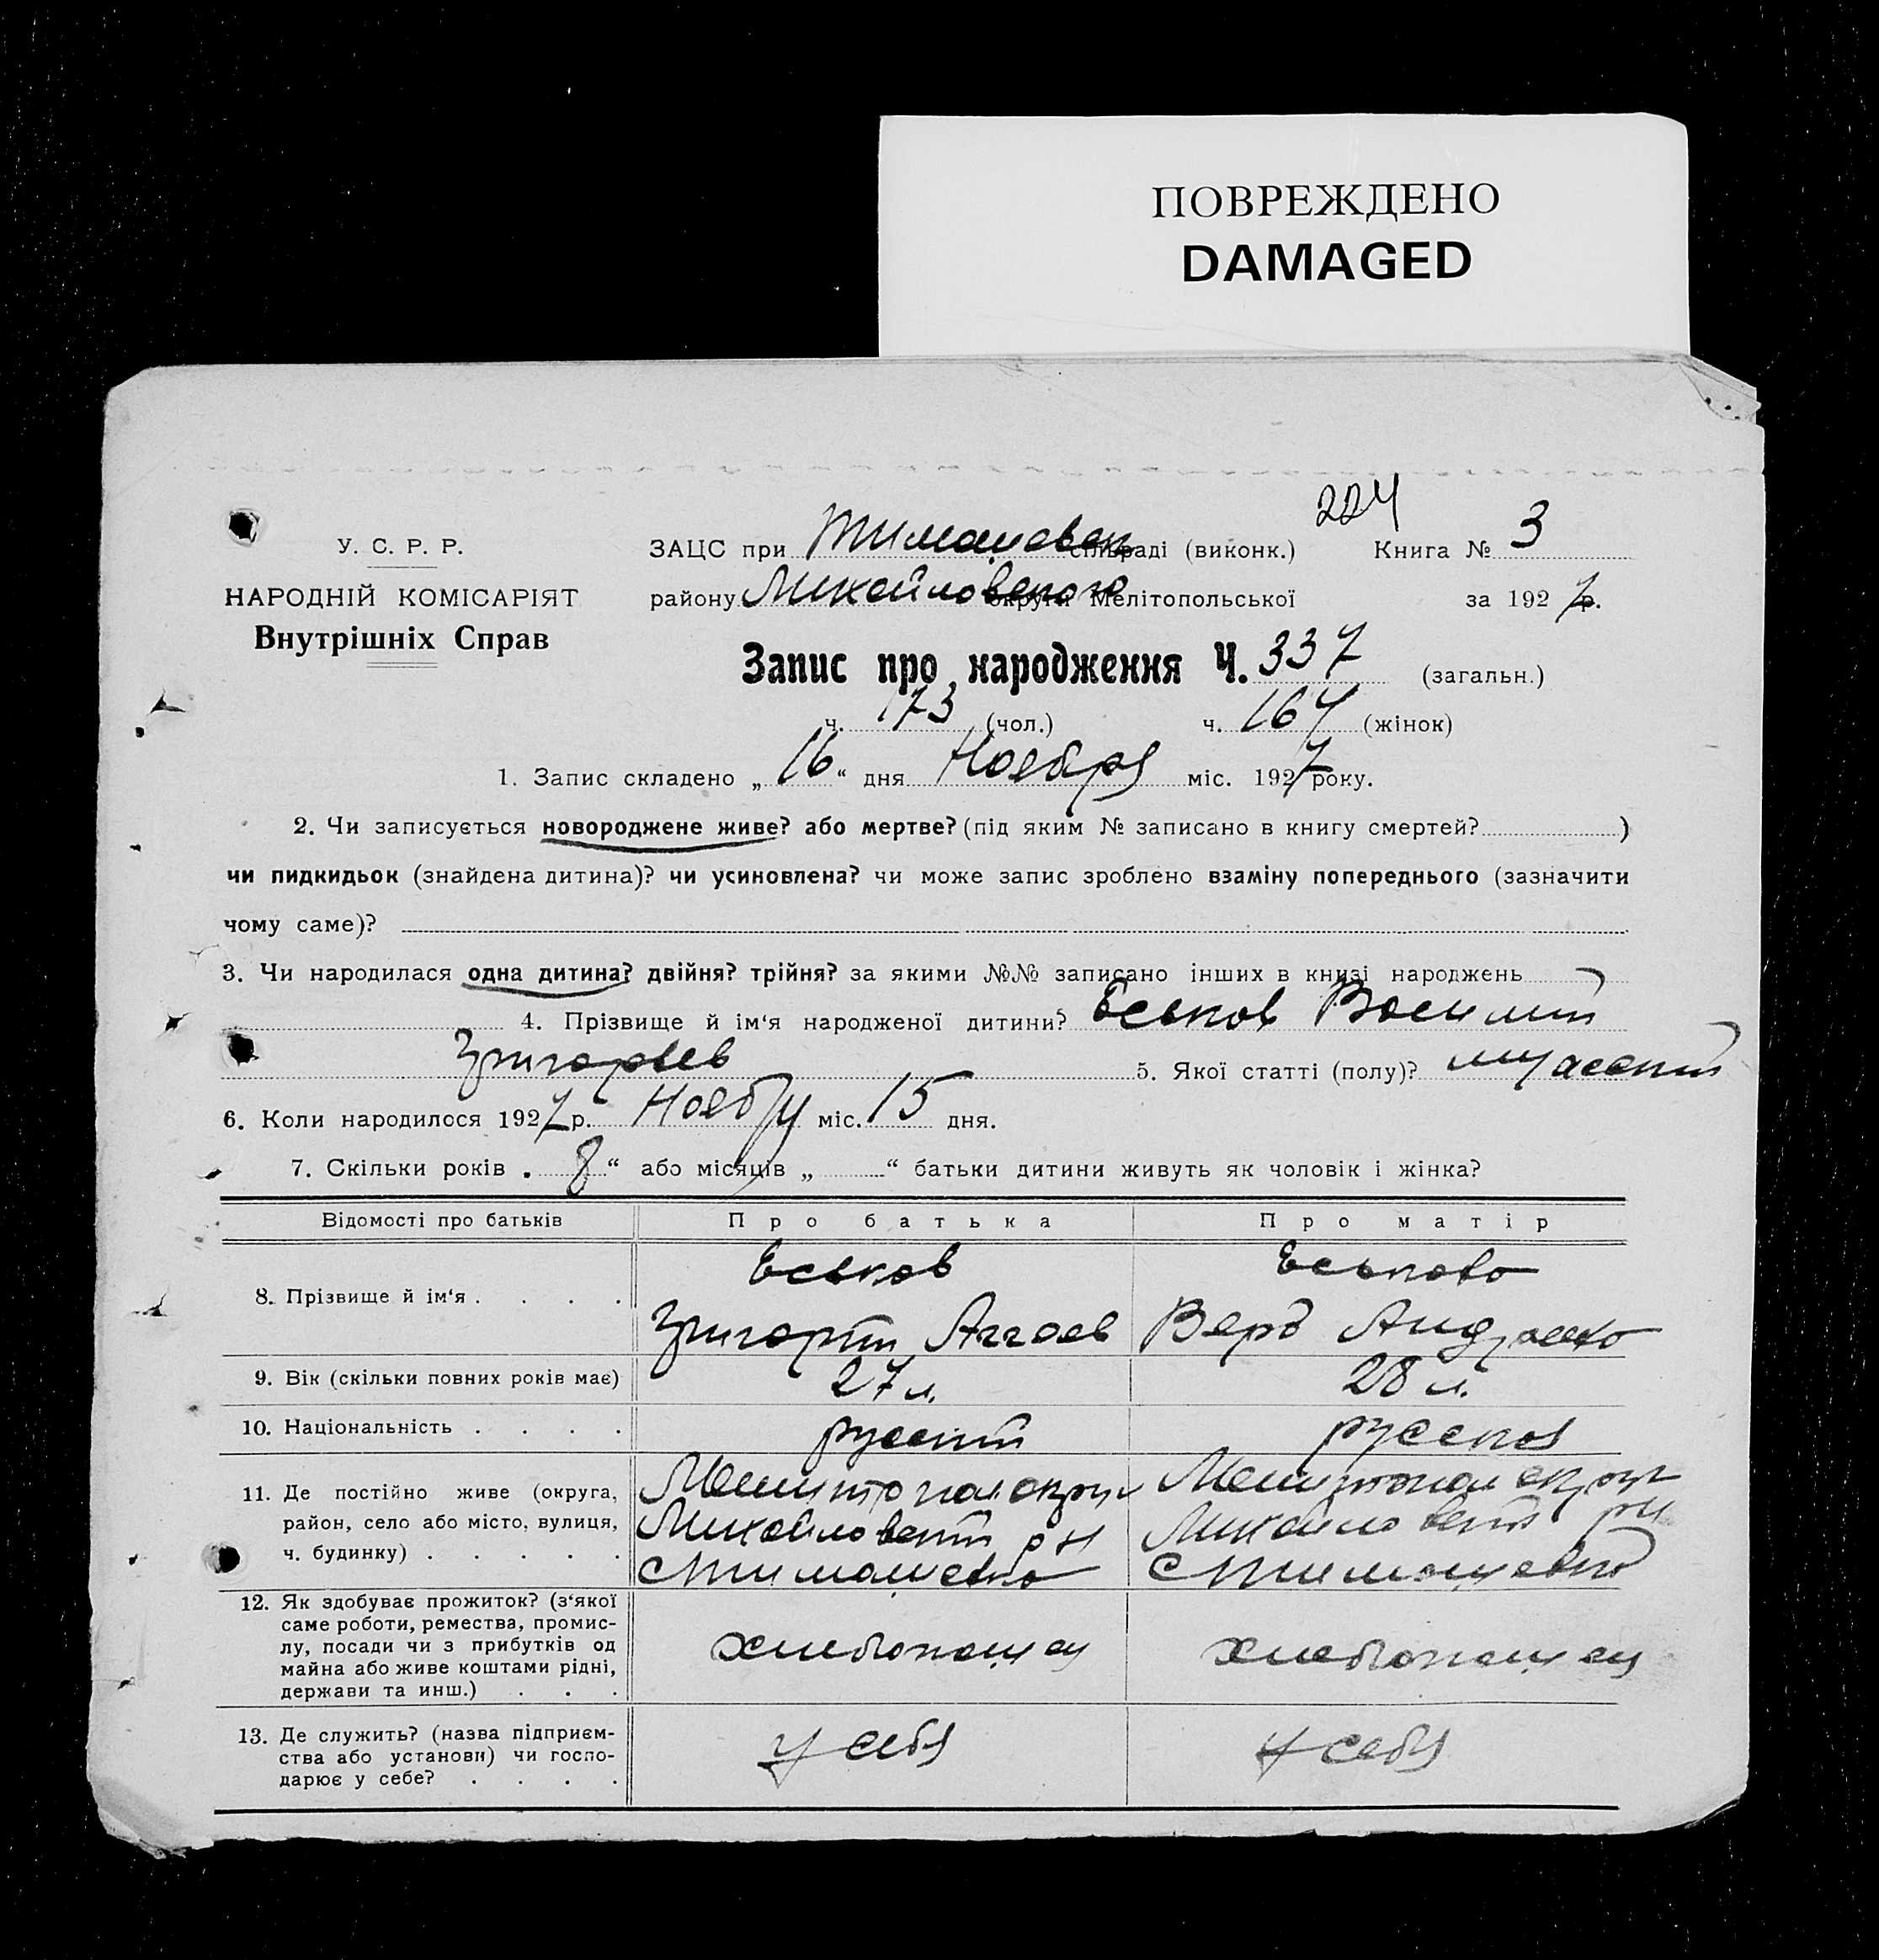 ПОВРЕЖДЕНО
DAMAGED
224
У. С. Р. Р.
НАРОДНІЙ КОМІСАРІЯТ
Внутрішніх Справ
ЗАЦС при Тимашевск сільраді (виконк.) Книга № 3
району Михайловского округи Мелітопольської за 1927 р.
Запис про народження Ч. 337 (загальн.)
ч. 173 (чол.) ч. 164 (жінок)
1. Запис складено „16“ дня Ноября міс. 1927 року.
2. Чи записується новороджене живе? або мертве? (під яким № записано в книгу смертей? )
чи пидкидьок (знайдена дитина)? чи усиновлена? чи може запис зроблено взаміну попереднього (зазначити
чому саме)?
3. Чи народилася одна дитина? двійня? трійня? за якими №№ записано інших в книзі народжень
4. Прізвище й ім‘я народженої дитини? Еськов Василий
Григорьев 5. Якої статті (полу)? мужский
6. Коли народилося 1927 р. Ноябру міс. 15 дня.
7. Скільки років „8“ або місяців „ “ батьки дитини живуть як чоловік і жінка?
Відомості про батьків Про батька Про матір
8. Прізвище й ім‘я . . . . Еськов Еськова
Григорий Аггеев Вера Андреево
9. Вік (скільки повних років має) 27 л. 28 л.
10. Національність . . . . русский русская
11. Де постійно живе (округа, Мелитопол. округ Мелитопол округ
район, село або місто, вулиця, Михайловский рн Михайловский рн
ч. будинку) . . . . . с Тимашевка с Тимашевка
12. Як здобуває прожиток? (з‘якої
саме роботи, ремества, промис-
лу, посади чи з прибутків од хлебопашец хлебопашец
майна або живе коштами рідні,
держави та инш.) . . .
13. Де служить? (назва підприєм-
ства або установи) чи госпо- у себя у себя
дарює у себе? . . . .